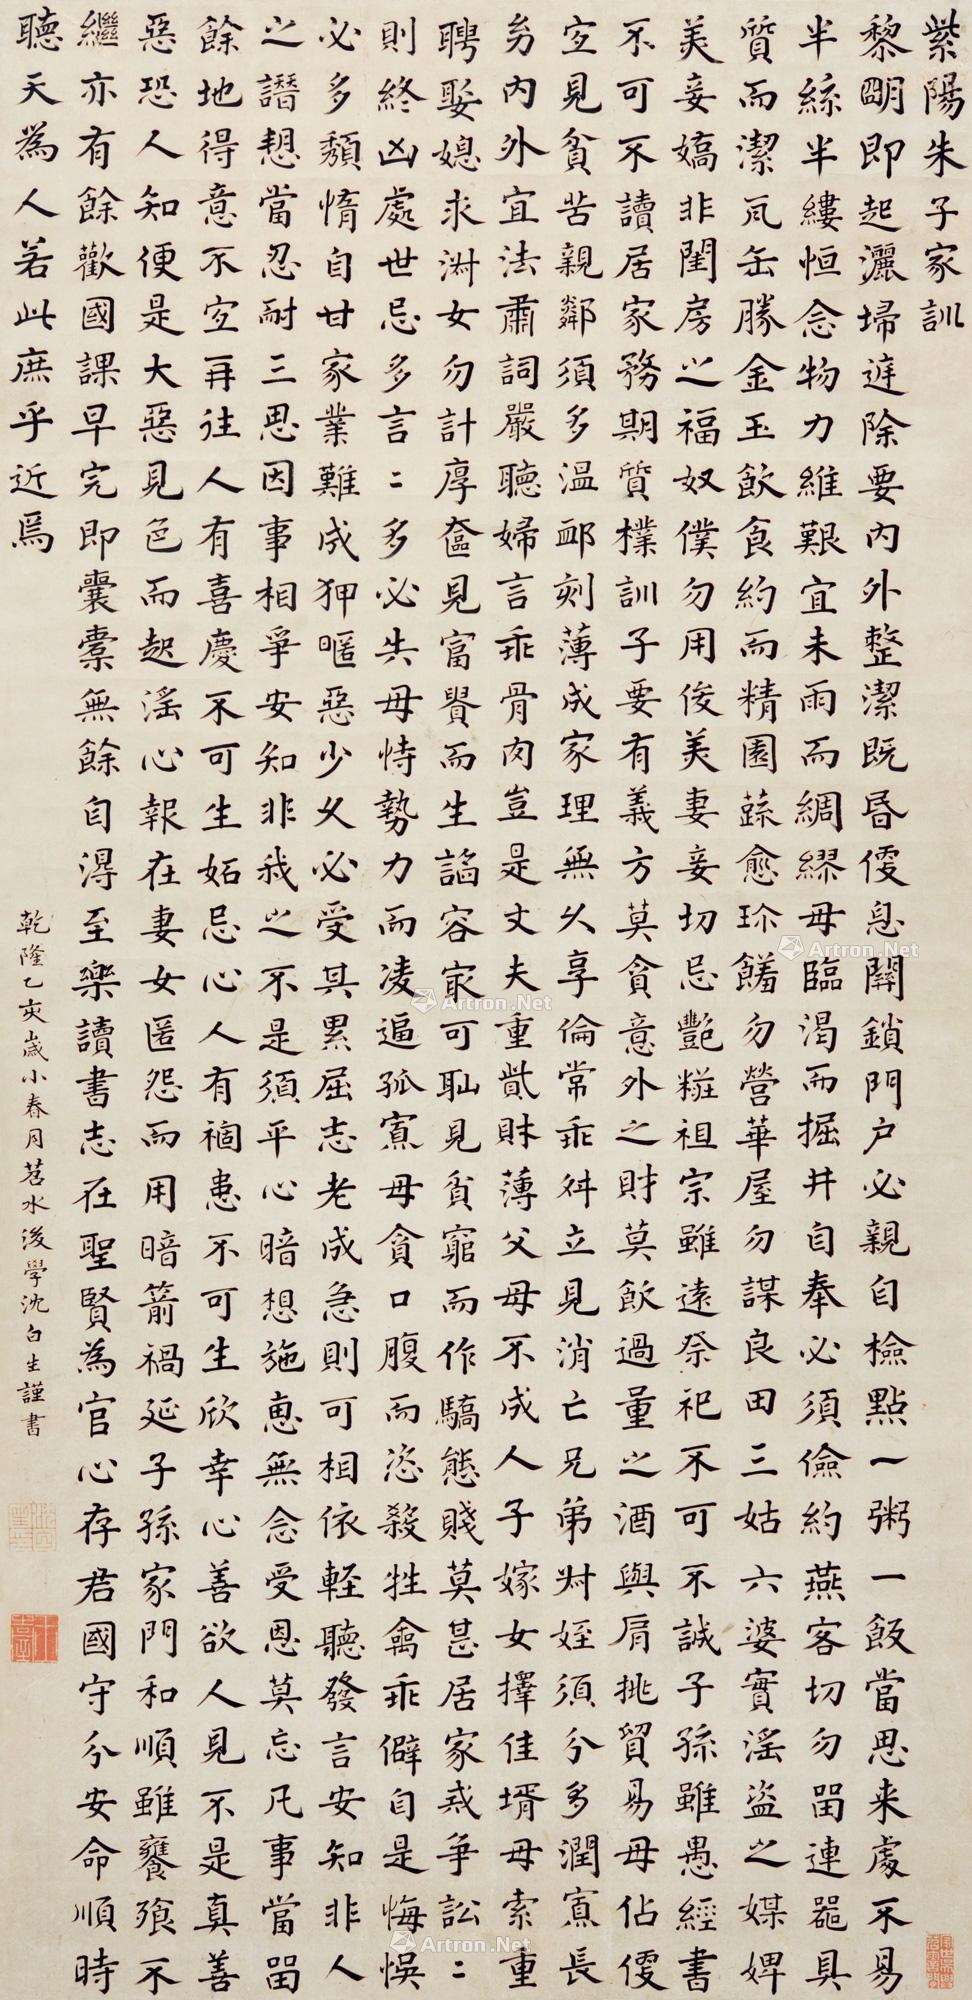 紫陽朱子家訓
黎明即起灑掃庭除要內外整潔既昏便息關鎖門戶必親自檢點一粥一飯當思来處不易
半絲半縷恒念物力維艱宜未雨而綢繆毋臨渴而掘井自奉必須儉約燕客切勿留連器具
質而潔瓦缶勝金玉飲食約而精園蔬愈珍饈勿營華屋勿謀良田三姑六婆實淫盜之媒婢
美妾嬌非閨房之福奴僕勿用俊美妻妾切忌艷粧祖宗雖遠祭祀不可不誠子孫雖愚經書
不可不讀居家務期質樸訓子要有義方莫貪意外之財莫飲過量之酒與肩挑貿易毋佔便
宜見貧苦親鄰須多温卹刻薄成家理無久享倫常乖舛立見消亡兄弟叔姪須分多潤寡長
幼內外宜法肅詞嚴聽婦言乖骨肉豈是丈夫重貲財薄父母不成人子嫁女擇佳壻毋索重
聘娶媳求淑女勿計厚奩見富貴而生諂容最可恥見貧窮而作驕態賤莫甚居家戒爭訟訟
則終凶處世忌多言言多必失毋恃勢力而凌逼孤寡毋貪口腹而恣殺牲禽乖僻自是悔悞
必多頹惰自甘家業難成狎暱惡少久必受其累屈志老成急則可相依輕聽發言安知非人
之譖愬當忍耐三思因事相爭安知非我之不是須平心暗想施惠無念受恩莫忘凡事當留
餘地得意不宜再往人有喜慶不可生妬忌心人有禍患不可生欣幸心善欲人見不是真善
惡恐人知便是大惡見色而起淫心報在妻女匿怨而用暗箭禍延子孫家門和順雖饔飱不
繼亦有餘歡國課早完即囊橐無餘自得至樂讀書志在聖賢為官心存君國守分安命順時
聽天為人若此庶乎近焉
乾隆乙亥歲小春月苕水後學沈白生謹書
Artron.Net
Artron.Net
Artron.Net